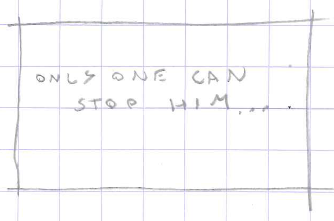 ONLY ONE CAN
STOP HIM....